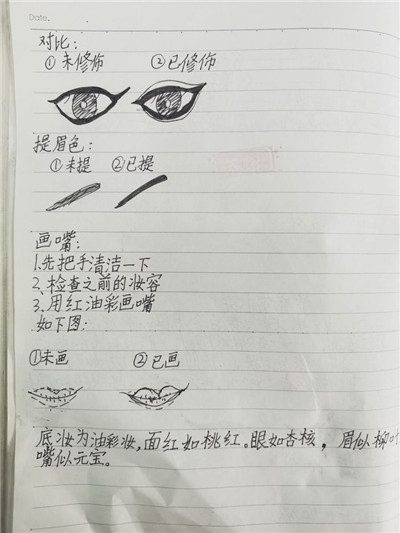 Date.
对比：
①未修饰 ②已修饰
提眉色：
①未提 ②已提
画嘴：
1.先把手清洁一下
2.检查之前的妆容
3.用红油彩画嘴
如下图：
①未画 ②已画
底妆为油彩妆，面红如桃红。眼如杏核，眉似柳叶
嘴似元宝。